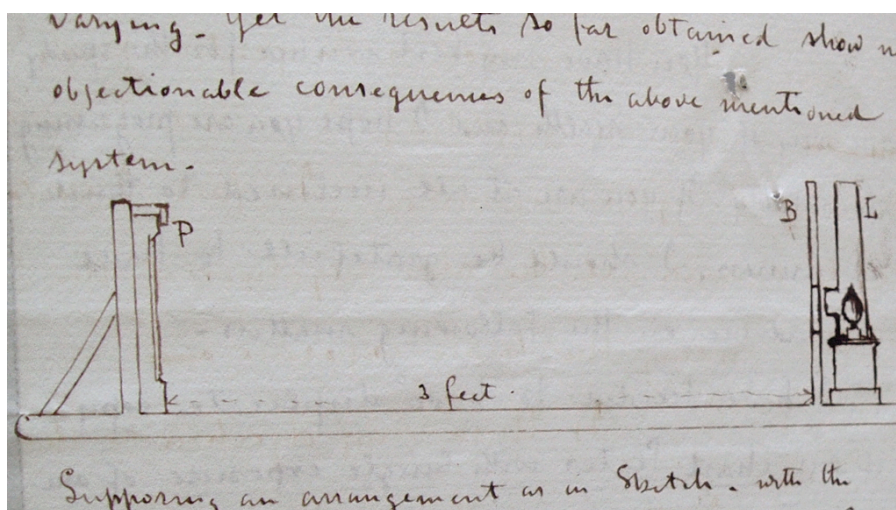 varying. Yet the results so far obtained show
objectionable consequences of the above mentioned
system.
P
B
L
3 feet.
Supposing an arrangement as in Sketch. with the